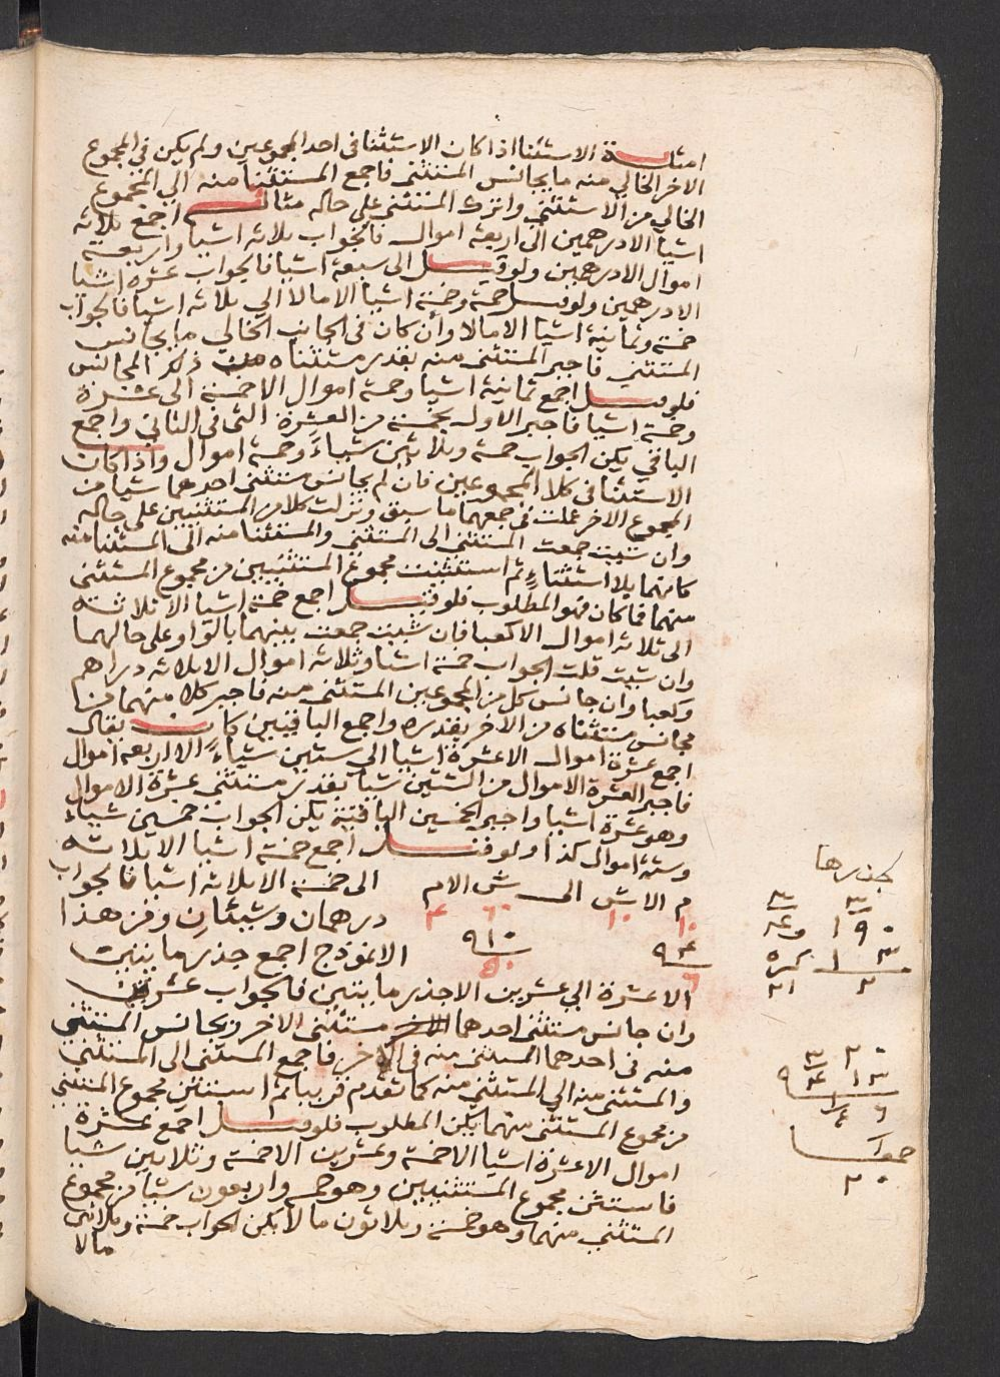 امثلة الاستثنا اذا كان الاستثنا في احد المجموعين ولم يكن في المجموع
الاخر الخالي منه ما يجانس المستثني فاجمع المستثنا منه الي المجموع
الخالي من الاستثني واترك المستثني علي حاله مثاله اجمع ثلاثه
اشيا الا درهمين الي اربعة اموال فالجواب ثلاثه اشيا واربعة
اموال الا درهمين ولو قيل الي سبعة اشيا فالجواب عشرة اشيا
الا درهمين ولو قيل خمسة وخمسة اشيا الا مالا الي ثلاثه اشيا فالجواب
خمسة وثمانية اشيا الا مالا وان كان في الجانب الخالي ما يجانس
المستثني فاجبر المستثني منه بقدر مستثناه من ذلك المجانس
فلو قيل اجمع ثمانية اشيا وخمسة اموال الا خمسة الي عشرة
وخمسة اشيا فاجبر الاول بخمسة من العشرة التي في الثاني واجمع
الباقي يكن الجواب خمسة وثلاثين شياء وخمسة اموال واذا كان
الاستثنا في كلا المجموعين فان لم يجانس مستثني احدهما شيا من
المجموع الاخر عملت في جمعهما ما سبق وتركت كلا من المستثنيين علي حاله
وان شيت جمعت المستثني الي المستثني والمستثنا منه الي المستثنا منه
كانهما بلا استثناء ثم استثنيت مجموع المستثنيين من مجموع المستثني
منهما فما كان فهو المطلوب فلو قيل اجمع خمسة اشيا الا ثلاثة
الي ثلاثه اموال الا كعبا فان شيت جمعت بينهما بالواو علي حالهما
وان شيت قلت الجواب خمسة اشيا وثلاثه اموال الا ثلاثه دراهم
وكعبا وان جانس كل من المجموعين المستثني منه فاجبر كلا منهما من
مجانس مستثناه من الاخر بقدره واجمع الباقيين كان يقال
اجمع عشرة اموال الا عشرة اشيا الي ستين شياء الا اربعة اموال
فاجبر العشرة الاموال من الستين شيا بقدر مستثني عشرة الاموال
وهو عشرة اشيا واجبر الخمسين الباقية يكن الجواب خمسين شياء
وستة اموال كذا ولو قيل اجمع خمسة اشيا الا ثلاثه
الي خمسة الا ثلاثه اشيا فالجواب
م الا ش الي ش الا م
١٠ ١٠ ٦٠ ٤
درهمان وشيئان وقس هذا
الانموذج اجمع جذر مايتين
الا عشرة الي عشرين الا جذر مايتين فالجواب عشرة
وان جانس مستثني احدهما مستثني الاخر ويجانس المستثني
منه في احدهما المستثني منه في الاخر فاجمع المستثني الي المستثني
والمستثني منه الي المستثني منه كما تقدم قريبا ثم استثن مجموع المستثني
من مجموع المستثني منهما يكن المطلوب فلو قيل اجمع عشرة
اموال الا عشرة اشيا الا خمسة وعشرين الا خمسة وثلاثين شيا
فاستثن مجموع المستثنيين وهو خمسة واربعون شيا من مجموع
المستثني منهما وهو خمسة وثلاثون مالا يكن الجواب خمسة وثلاثين
مالا
بجذرها